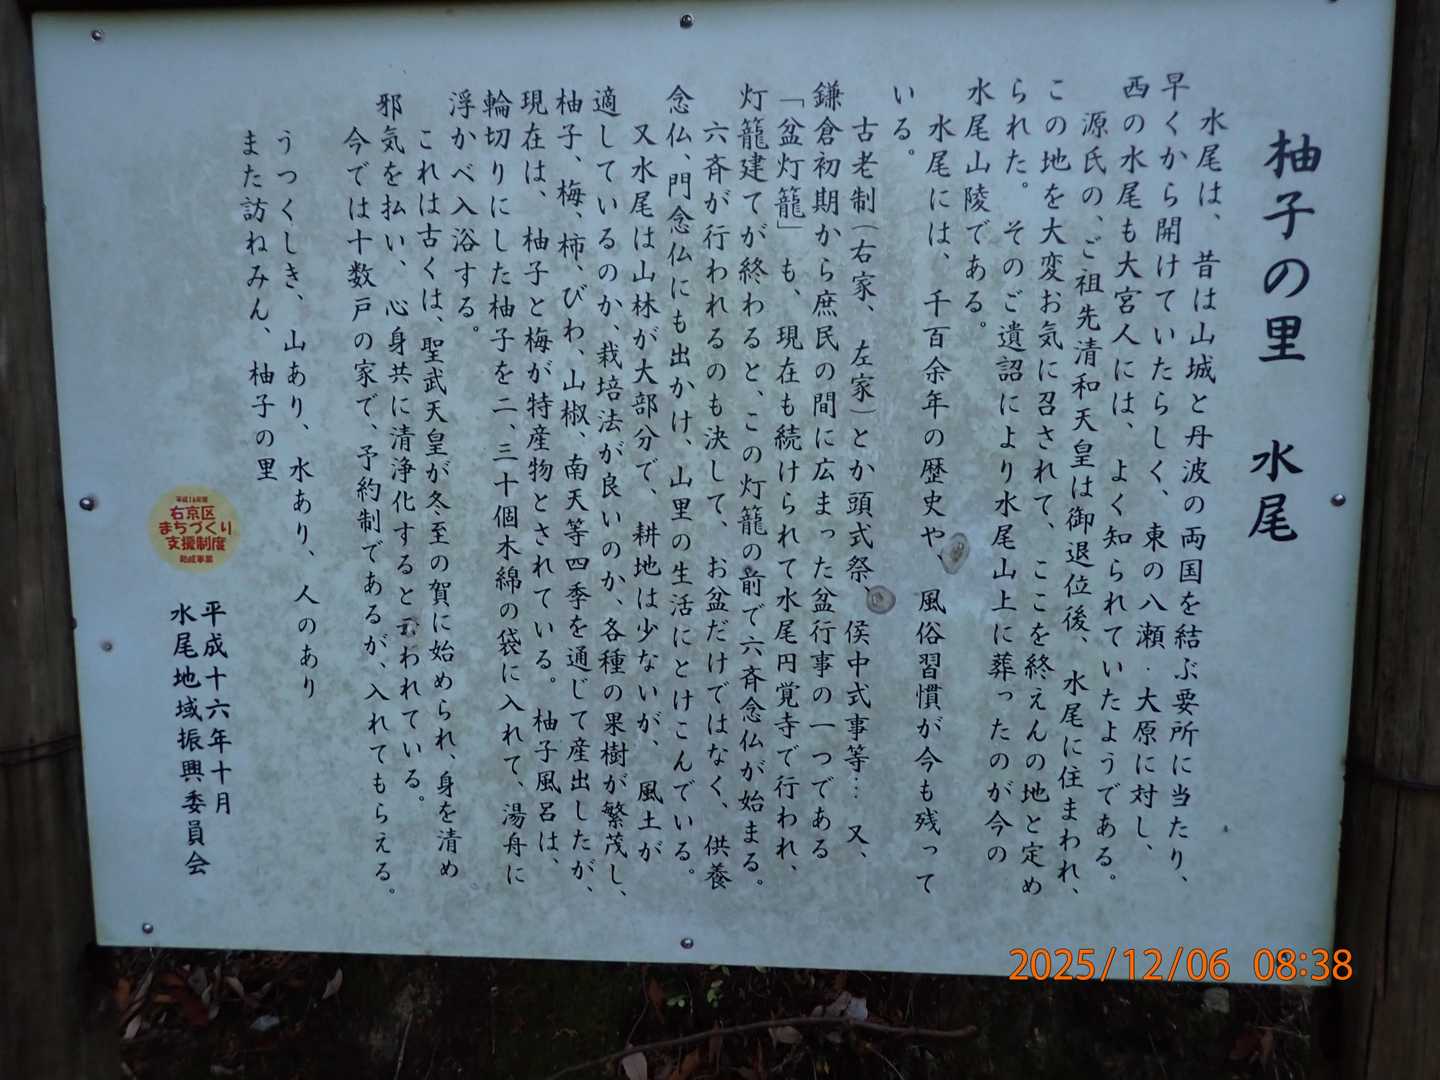 柚子の里　水尾
水尾は、昔は山城と丹波の両国を結ぶ要所に当たり、
早くから開けていたらしく、東の八瀬・大原に対し、
西の水尾も大宮人には、よく知られていたようである。
源氏の、ご祖先清和天皇は御退位後、水尾に住まわれ、
この地を大変お気に召されて、ここを終えんの地と定め
られた。そのご遺詔により水尾山上に葬ったのが今の
水尾山陵である。
水尾には、千百余年の歴史や、風俗習慣が今も残って
いる。
古老制（右家、左家）とか頭式祭、侯中式事等…又、
鎌倉初期から庶民の間に広まった盆行事の一つである
「盆灯籠」も、現在も続けられて水尾円覚寺で行われ、
灯籠建てが終わると、この灯籠の前で六斉念仏が始まる。
六斉が行われるのも決して、お盆だけではなく、供養
念仏、門念仏にも出かけ、山里の生活にとけこんでいる。
又水尾は山林が大部分で、耕地は少ないが、風土が
適しているのか、栽培法が良いのか、各種の果樹が繁茂し、
柚子、梅、柿、びわ、山椒、南天等四季を通じて産出したが、
現在は、柚子と梅が特産物とされている。柚子風呂は、
輪切りにした柚子を二、三十個木綿の袋に入れて、湯舟に
浮かべ入浴する。
これは古くは、聖武天皇が冬至の賀に始められ、身を清め
邪気を払い、心身共に清浄化すると云われている。
今では十数戸の家で、予約制であるが、入れてもらえる。
うつくしき、山あり、水あり、人のあり
また訪ねみん、柚子の里
平成16年度
右京区
まちづくり
支援制度
助成事業
平成十六年十月
水尾地域振興委員会
2025/12/06 08:38